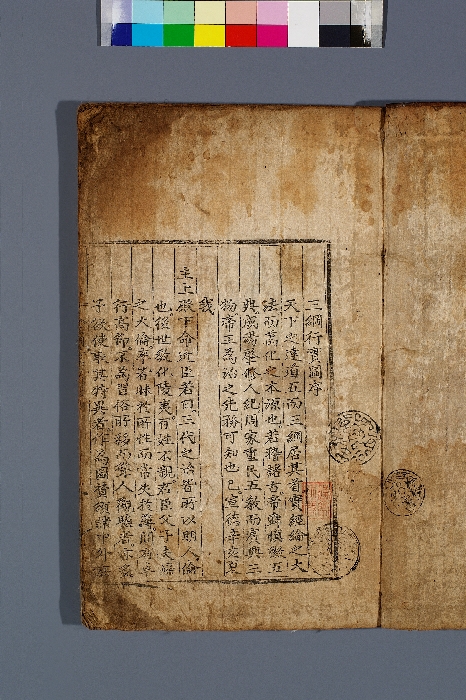 三綱行實圖序
天下之達道五而三綱居其首實經綸之大
法而萬化之本源也若稽古帝舜慎徽五
典成湯肇修人紀周家重民五教而賓興三
物帝王爲治之先務可知也已宣德辛亥夏
我
主上殿下命近臣若曰三代之治皆所以明人倫
也後世敎化陵夷百姓不親君臣父子夫婦
之大倫率皆昧於所性而常失於薄間有卓
行高節不爲習俗所移而聳人觀聽者亦多
予欲使取其特異者作爲圖讚頒諸中外